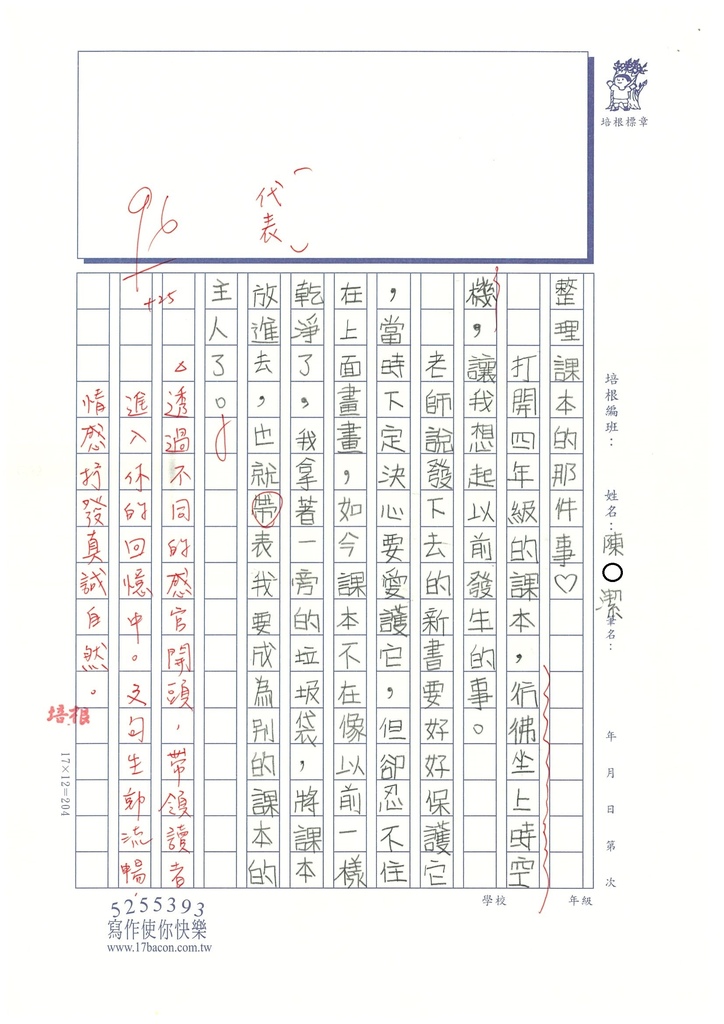 培根標章
培根編班：
姓名：陳○潔
筆名：
年 月 日 第 次
學校 年級
96
+25
「代表」
整理課本的那件事♡
打開四年級的課本，彷彿坐上時空
機，讓我想起以前發生的事。
老師說發下去的新書要好好保護它
，當時下定決心要愛護它，但卻忍不住
在上面畫畫，如今課本不在像以前一樣
乾淨了，我拿著一旁的垃圾袋，將課本
放進去，也就帶表我要成為別的課本的
主人了。
△透過不同的感官開頭，帶領讀者
進入你的回憶中。文句生動流暢
情感抒發真誠自然。
培根
17×12=204
5255393
寫作使你快樂
www.17bacon.com.tw